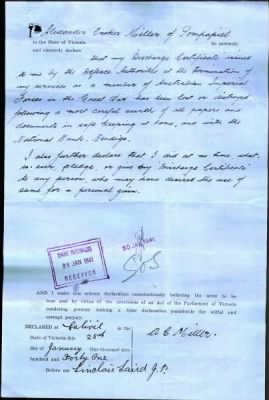 I, Alexander Croker Miller of Pompapiel
in the State of Victoria do solemnly
and sincerely declare
that my Discharge Certificate issued
to me by the Defence Authorities at the termination of
my services as a member of Australian Imperial
Forces in the Great War has been lost or destroyed
following a most careful search of all papers and
documents in safe keeping at home, and with the
National Bank, Bendigo.
I also further declare that I did at no time what
so ever pledge or give my Discharge Certificate
to any person who may have desired the use of
same for a personal gain.
30 JAN 1941
BASE RECORDS
29 JAN 1941
RECEIVED
AND I make this solemn declaration conscientiously believing the same to be
true and by virtue of the provisions of an Act of the Parliament of Victoria
rendering persons making a false declaration punishable for wilful and
corrupt perjury.
DECLARED at Calivil in the
State of Victoria this 25th
day of January One thousand nine
hundred and Forty One
A C Miller.
Before me Sinclair Laird J.P.